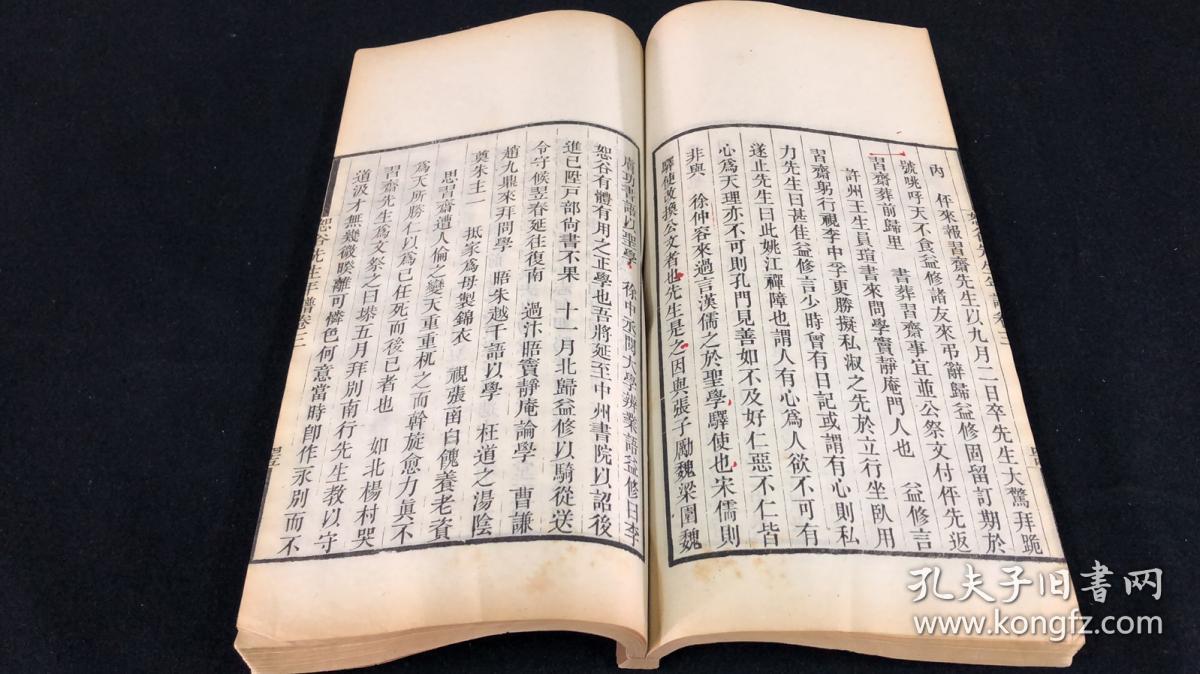 內 伻來報習齋先生以九月二日卒先生大驚拜跪
號咷呼天不食益修諸友來弔辭歸益修固留訂期於
習齋葬前歸里 書葬習齋事宜並公祭文付伻先返
許州王生員瑄書來問學竇靜庵門人也 益修言
習齋躬行視李中孚更勝擬私淑之先於立行坐臥用
力先生曰甚佳益修言少時曾有日記或謂有心則私
遂止先生曰此姚江禪障也謂人有心為人欲不可有
心為天理亦不可則孔門見善如不及好仁惡不仁皆
非與 徐仲容來過言漢儒之於聖學驛使也宋儒則
驛使改換公文者也先生是之因與張子勵魏梁園魏
功書語以聖學 徐中丞閱大學辨業語益修曰李
恕谷有體有用之正學也吾將延至中州書院以詔後
進已陞戶部尚書不果 十一月北歸益修以騎從送
令守候翌春延往復南 過汴晤竇靜庵論學 曹謙
趙九鼎來拜問學 晤朱越千語以學 枉道之湯陰
奠朱主一 抵家為母製錦衣 視張函白餽養老資
思習齋遭人倫之變天重重杌之而幹旋愈力真不
為天所勝仁以為己任死而後已者也 如北楊村哭
習齋先生為文祭之曰塨五月拜別南行先生教以守
道汲才無幾微睽離可憐色何意當時卽作永別而不
恕谷先生年譜卷三
孔夫子旧书网
www.kongfz.com